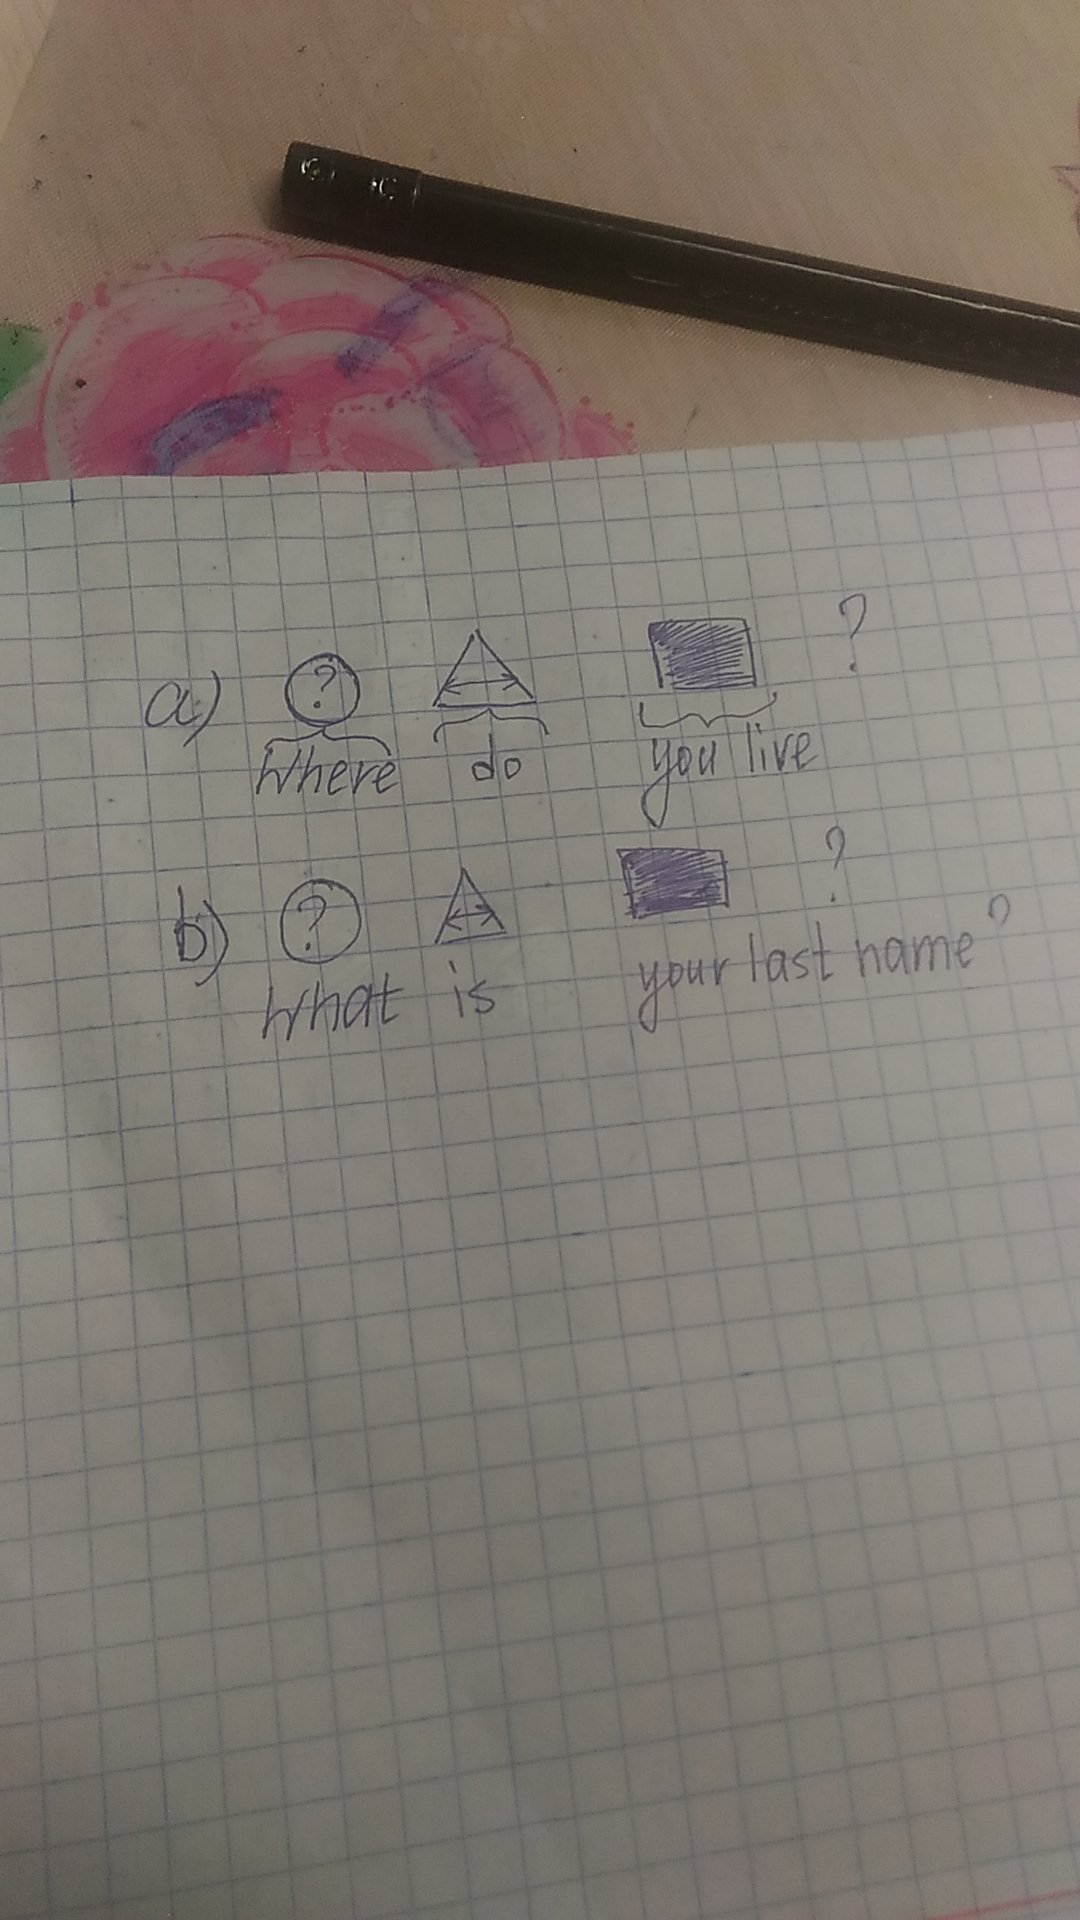 a) ? ?
Where do you live
b) ? ?
What is your last name?